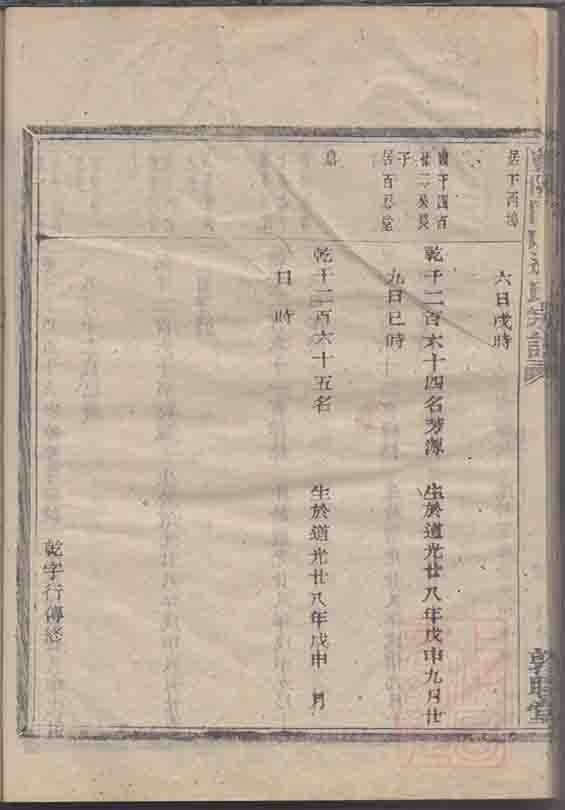 居下西埠
六日戌時
寅千四百
廿二癸長
子
居百忍堂
乾千二百六十四名芳源 生於道光廿八年戊申九月廿
九日巳時
乾千二百六十五名 生於道光廿八年戊申 月
日 時
乾字行傳終
敦睦堂